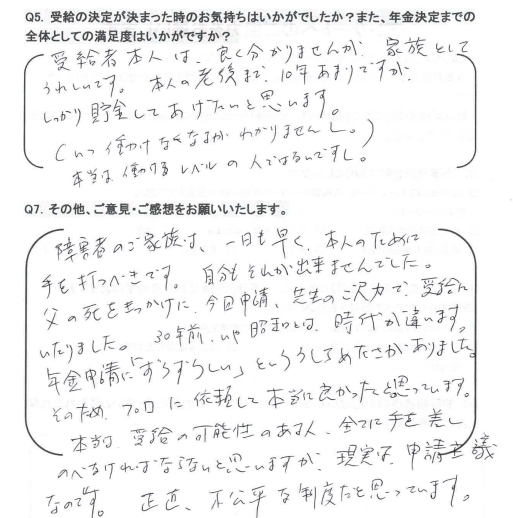 Q5. 受給の決定が決まった時のお気持ちはいかがでしたか？また、年金決定までの
全体としての満足度はいかがですか？
受給者本人は、良く分かりませんが、家族として
うれしいです。本人の老後まで、10年あまりですが、
しっかり貯金してあげたいと思います。
(いつ働けなくなるか わかりませんし。)
本当は、働けるレベルの人ではないですし。
Q7. その他、ご意見・ご感想をお願いいたします。
障害者のご家族は、一日も早く、本人のために
手を打つべきです。自分もそれが出来ませんでした。
父の死をきっかけに、今回申請、先生のご尽力で、受給に
いたりました。30年前、いや昭和とは、時代が違います。
年金申請に「ずうずうしい」といううしろめたさがありました。
そのため、プロに依頼して本当に良かったと思っています。
本当は、受給の可能性のある人、全てに手を差し
のべなければならないと思いますが、現実は、申請主義
なのです。正直、不公平な制度だと思っています。